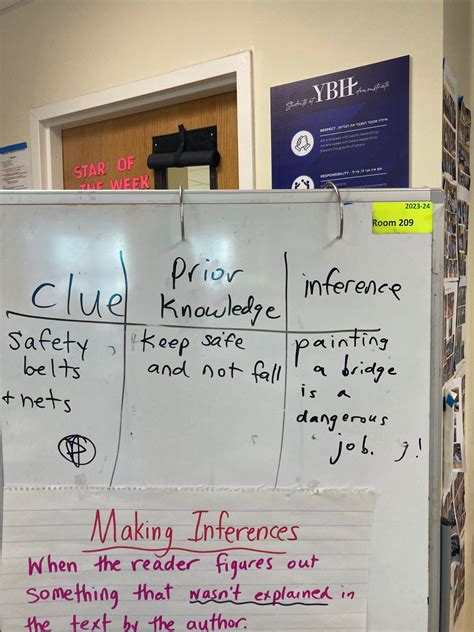 STAR OF
THE WEEK
Students at YBH demonstrate
RESPECT
RESPONSIBILITY
2023-24
Room 209
clue
Prior
Knowledge
inference
Safety
belts
+ nets
Keep safe
and not fall
painting
a bridge
is a
dangerous
job.
Making Inferences
When the reader figures out
something that wasn't explained in
the text by the author.